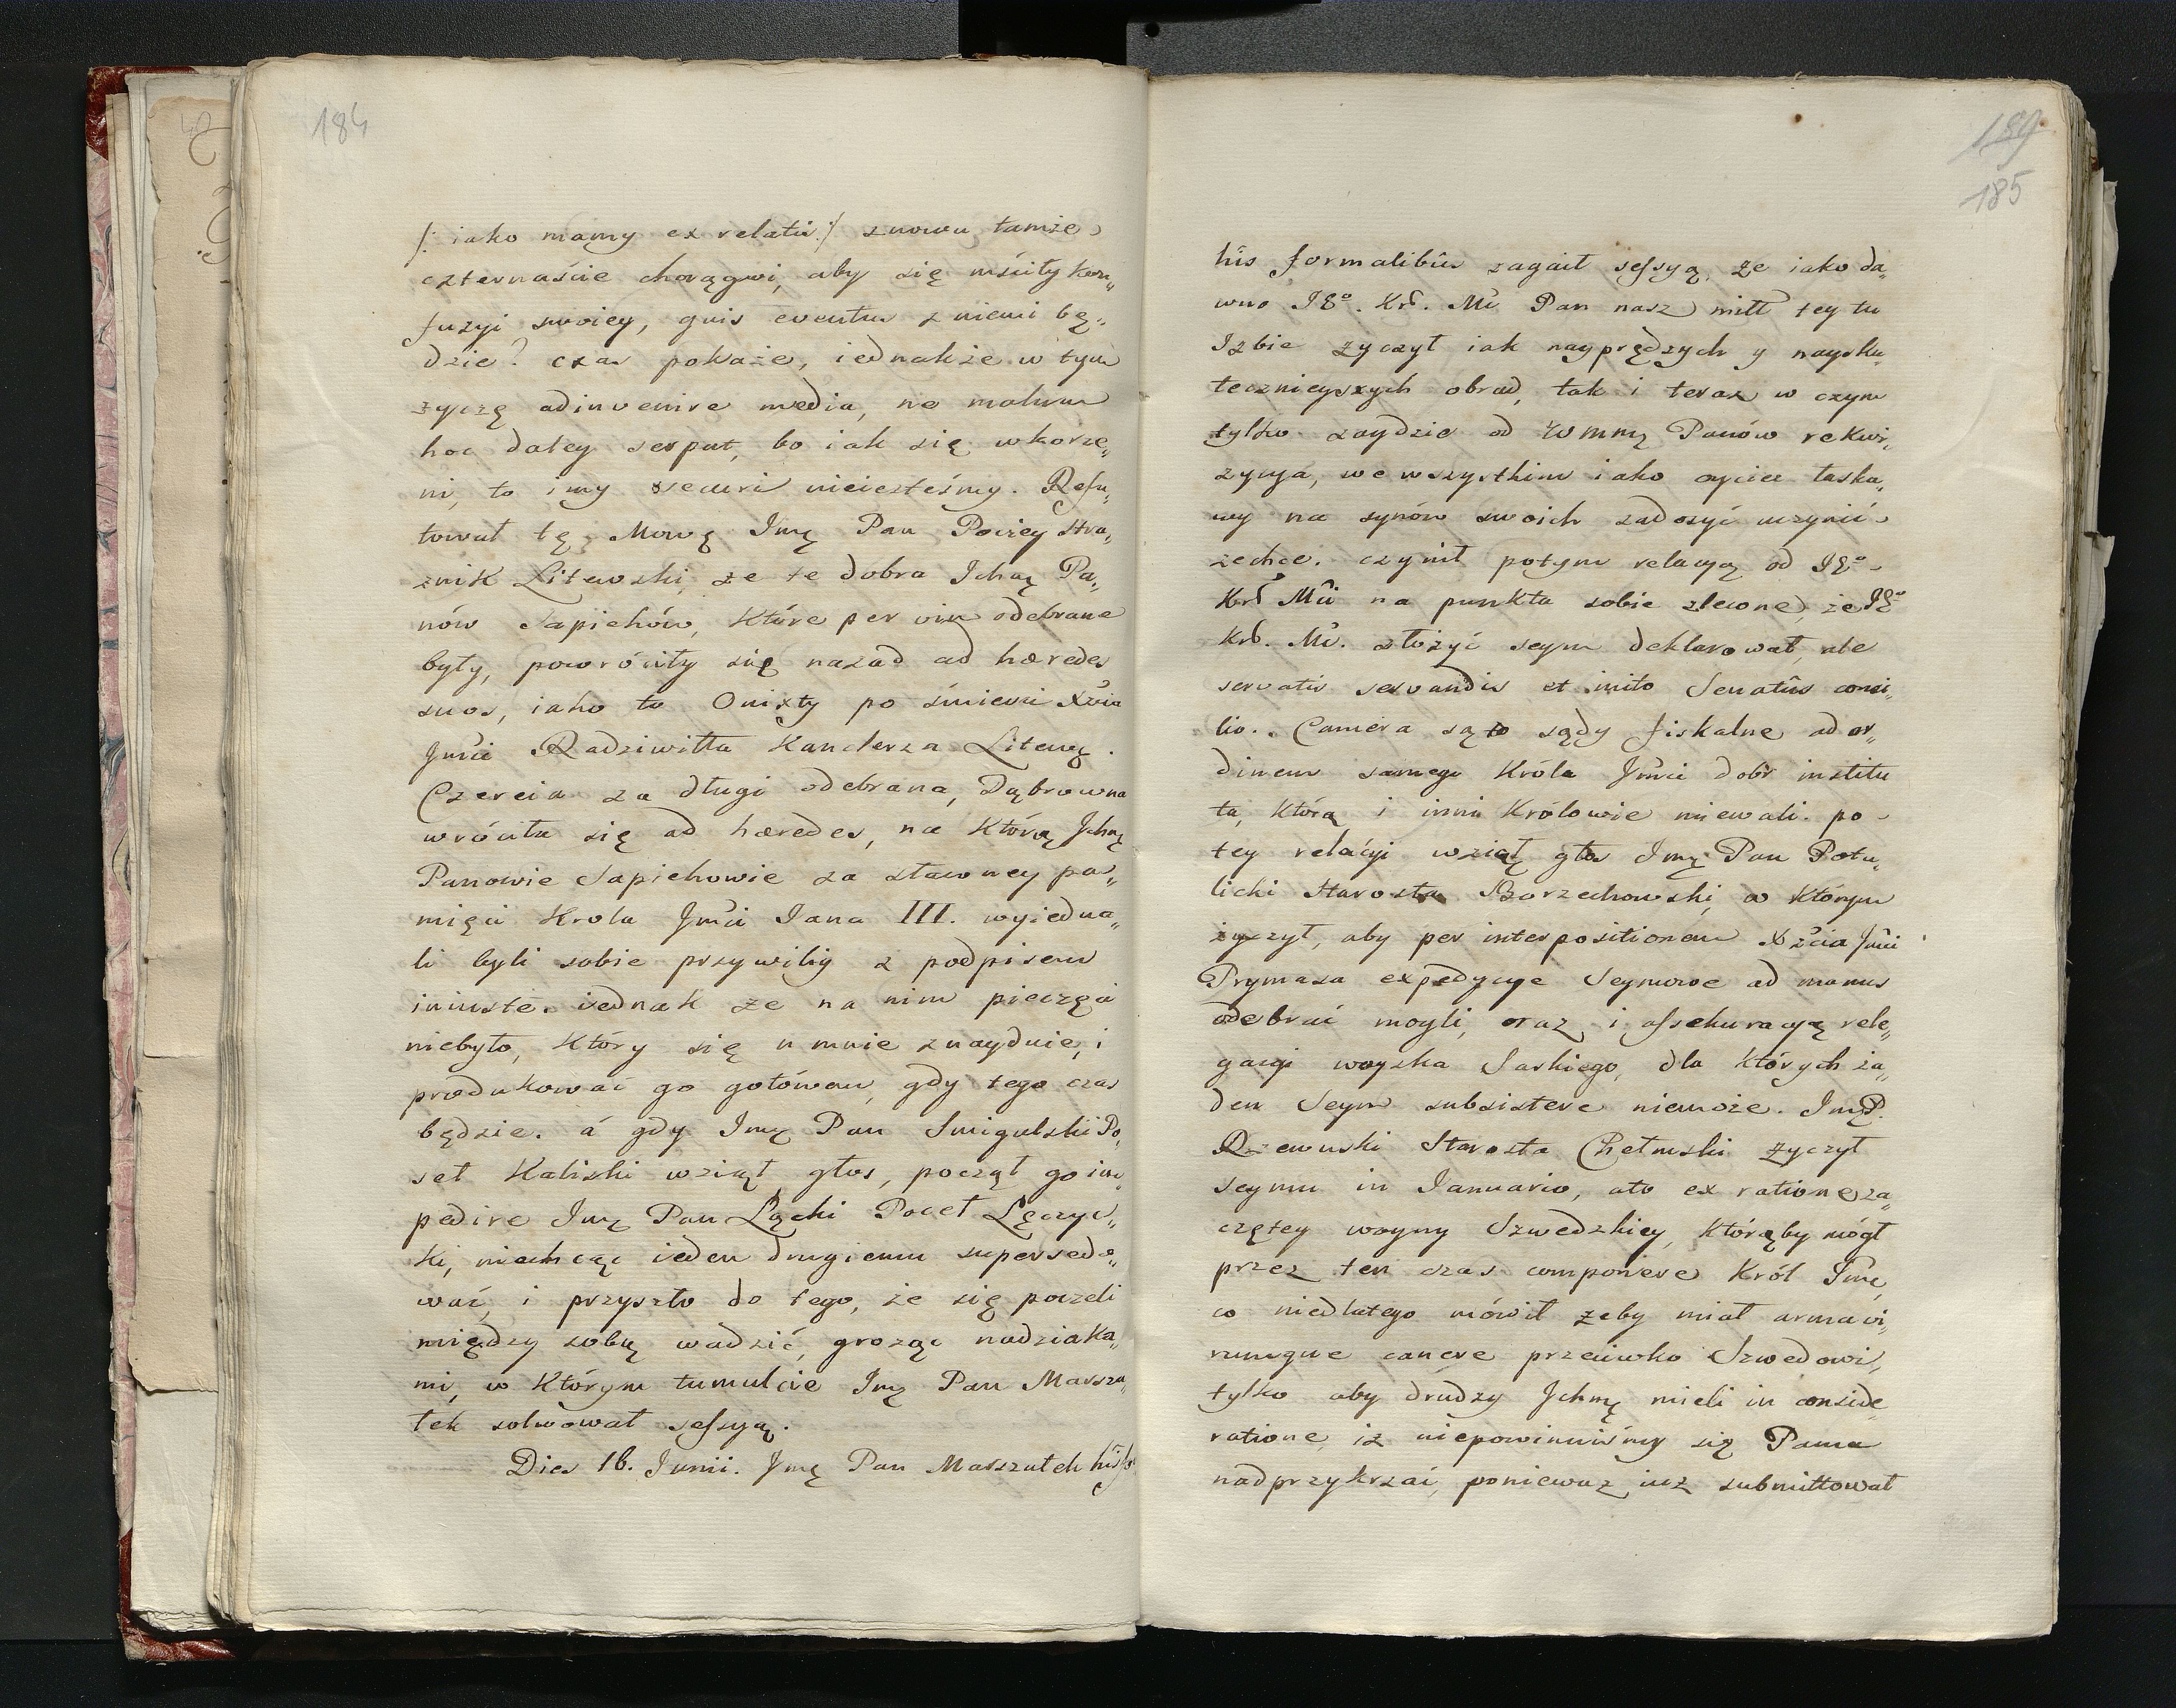 184
/: iako mamy ex relatu :/ znowu tamże
czternaście chorągwi, aby się mściły kon„
fuzyi swoiey, quis eventus z niemi bę„
dzie? czas pokaże, iednakże w tym
życzę adinvenire media, ne malum
hoc daley serpat, bo iak się wkorze„
ni, to i my securi nieiesteśmy. Refu„
tował tę Mowę Jmę Pan Pociey Stra„
żnik Litewski, że te dobra Ichmę Pa„
nów Sapiehów, które per vim odebrane
były, powróciły się nazad ad hæredes
suos, iako to Onixty po śmierci Xcia
Jmci Radziwiłła Kanclerza Litewę.
Czereia za długi odebrana, Dąbrowna
wróciła się ad hæredes, na którą Ichmę
Panowie Sapiehowie za sławney pa„
mięci Krola Jmci Jana III. wyiedna„
li byli sobie przywiliy z podpisem
iniuste. iednak że na nim pieczęci
niebyło, który się u mnie znayduie, i
produkować go gotówem, gdy tego czas
będzie. á gdy Jmę Pan Smigulski Po„
seł Kaliski wziął głos, począł go im„
pedire Jmę Pan Łącki Poseł Łęczyc„
ki, niechcąc ieden drugiemu supersedo„
wać, i przyszło do tego, że się poczeli
między sobą wadzić, grożąc nadziaka„
mi, w którym tumulcie Jmę Pan Marsza„
łek solwował sessyą.
Dies 16. Junii. Jmę Pan Marszałek his fo
189
185
his formalibus zagaił sessyą, że iako da„
wno JEo. Kró. Mć Pan nasz miłł tey tu
Izbie życzył iak nayprędszych y naysku„
tecznieyszych obrad, tak i teraz w czym
tylko zaydzie od Wmmę Panów rekwi„
zycya, we wszystkim iako oyciec łaska„
wy na synów swoich zadosyć uczynić
zechce. czynił potym relacyą od JEo
Kró Mći na punkta sobie zlecone, że JEo
Kró. Mć. złożyć seym deklarował, ale
servatis servandis et inito Senatûs consi„
lio. Camera są to sądy fiskalne ad or„
dinem samego Króla Jmci dobr institu
ta, którą i inni Królowie miewali. po
tey relacyi wziął głos Jmę Pan Potu„
licki Starosta Borzechowski, w którym
życzył, aby per interpositionem Xcia Jmci
Prymasa expedycye Seymowe ad manus
odebrać mogli, oraz i assekuracyą rele„
gacyi woyska Saskiego, dla których ża„
den Seym subsistere niemoże. Jmę P.
Rzewuski Starosta Chełmski życzył
seymu in Januario, ato ex ratione za„
czętey woyny Szwedzkiey, którąby mógł
przez ten czas componere Król Jmć,
co niedlatego mówił żeby miał arma vi„
rumque canere przeciwko Szwedowi,
tylko aby drudzy Ichmę mieli in conside„
ratione, iż niepowinniśmy się Panu
nadprzykrzać, ponieważ iuż submittował